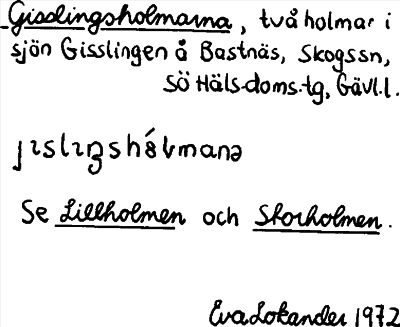 Gisslingsholmarna, två holmar i
sjön Gisslingen å Bastnäs, Skogssn,
SÖ Häls.doms.tg, Gävl.l.
Se Lillholmen och Storholmen.
Eva Lokander 1972